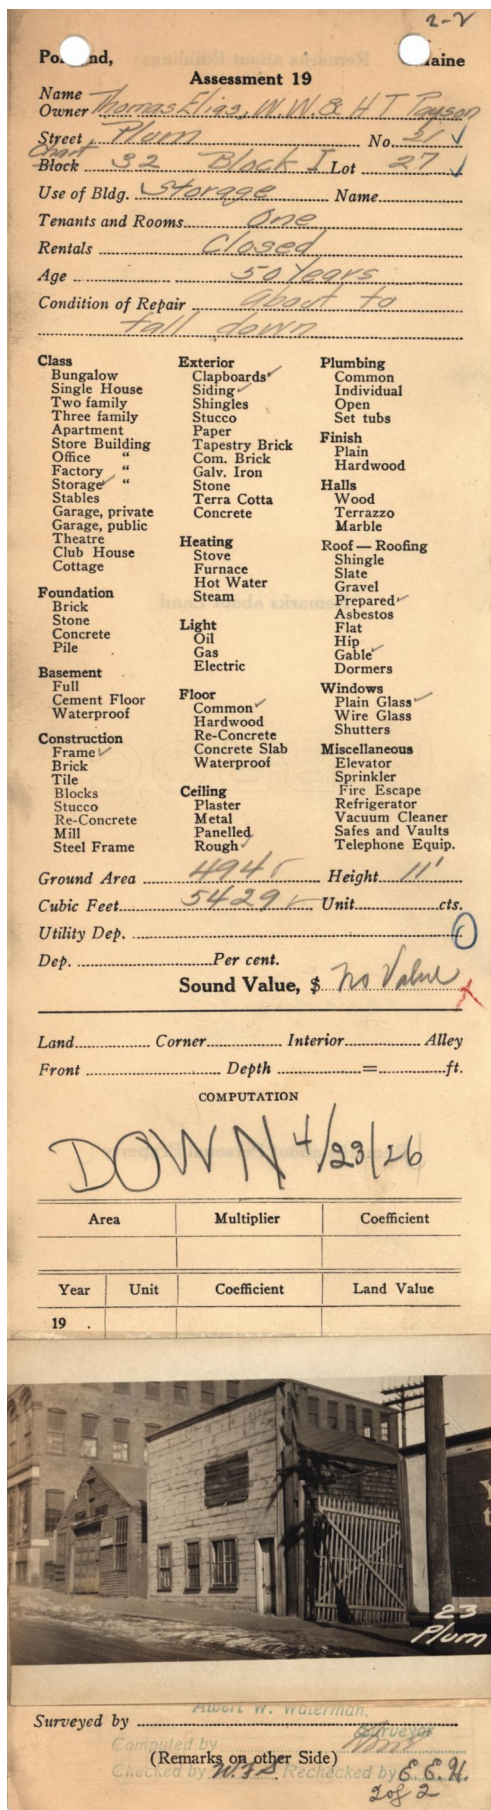 2-2
Portland, Maine
Assessment 19
Name
Owner Thomas Elias, W.W. & H T Payson
Street Plum No. 21 ✓
Chart
Block 32 Block I Lot 27 ✓
Use of Bldg. Storage Name
Tenants and Rooms One
Rentals Closed
Age 50 Years
Condition of Repair About to
fall down
Class
Bungalow
Single House
Two family
Three family
Apartment
Store Building
Office "
Factory "
Storage ✓ "
Stables
Garage, private
Garage, public
Theatre
Club House
Cottage
Foundation
Brick
Stone
Concrete
Pile
Basement
Full
Cement Floor
Waterproof
Construction
Frame ✓
Brick
Tile
Blocks
Stucco
Re-Concrete
Mill
Steel Frame
Exterior
Clapboards ✓
Siding ✓
Shingles
Stucco
Paper
Tapestry Brick
Com. Brick
Galv. Iron
Stone
Terra Cotta
Concrete
Heating
Stove
Furnace
Hot Water
Steam
Light
Oil
Gas
Electric
Floor
Common ✓
Hardwood
Re-Concrete
Concrete Slab
Waterproof
Ceiling
Plaster
Metal
Panelled
Rough ✓
Plumbing
Common
Individual
Open
Set tubs
Finish
Plain
Hardwood
Halls
Wood
Terrazzo
Marble
Roof — Roofing
Shingle
Slate
Gravel
Prepared ✓
Asbestos
Flat
Hip
Gable ✓
Dormers
Windows
Plain Glass ✓
Wire Glass
Shutters
Miscellaneous
Elevator
Sprinkler
Fire Escape
Refrigerator
Vacuum Cleaner
Safes and Vaults
Telephone Equip.
Ground Area 494 ✓ Height 11'
Cubic Feet 5429 ✓ Unit cts.
Utility Dep.
Dep. Per cent.
Sound Value, $ no Value
Land Corner Interior Alley
Front Depth = ft.
COMPUTATION
DOWN 4/23/26
Area Multiplier Coefficient
Year Unit Coefficient Land Value
19 .
23
Plum
Albert W. Waterman,
Surveyed by Surveyor
Computed by
(Remarks on other Side)
Checked by W.F.S. Rechecked by E.E.H.
2 of 2